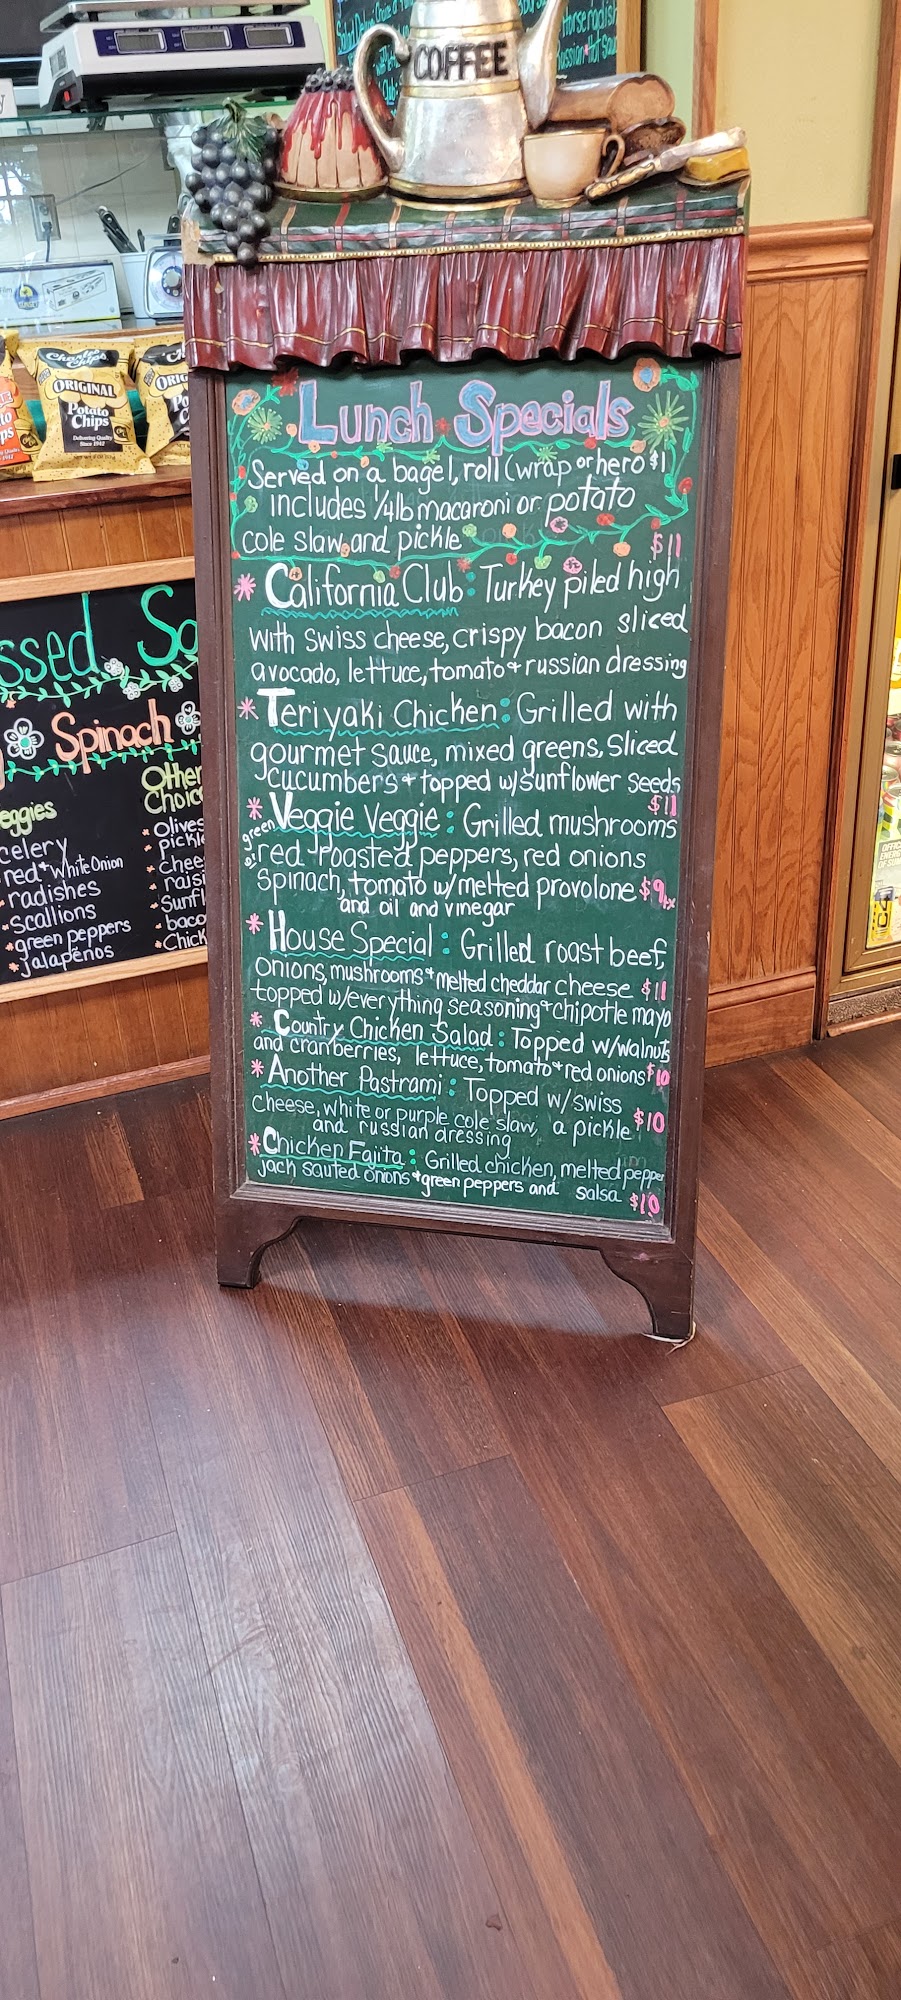 COFFEE
Horseradish
Charles Chips
ORIGINAL
Potato
Chips
Delivering Quality
Since 1942
Lunch Specials
Served on a bagel, roll (wrap or hero $1
includes 1/4lb macaroni or potato
cole slaw and pickle
$11
* California Club: Turkey piled high
with swiss cheese, crispy bacon sliced
avocado, lettuce, tomato + russian dressing
* Teriyaki Chicken: Grilled with
gourmet sauce, mixed greens, Sliced
cucumbers + topped w/sunflower seeds
$11
* Veggie Veggie: Grilled mushrooms
green
or red roasted peppers, red onions
Spinach, tomato w/melted provolone $9
and oil and vinegar
* House Special: Grilled roast beef,
onions, mushrooms + melted cheddar cheese $11
topped w/everything seasoning + chipotle mayo
* Country Chicken Salad: Topped w/walnuts
and cranberries, lettuce, tomato + red onions $10
* Another Pastrami: Topped w/swiss
cheese, white or purple cole slaw, a pickle $10
and russian dressing
* Chicken Fajita: Grilled chicken, melted pepper
jack sauted onions + green peppers and salsa $10
ssed Sa
Spinach
eggies
celery
red + White Onion
radishes
scallions
green peppers
jalapeños
Other
Choic
Olives
pickle
chee
raisi
Sunfl
baco
Chick